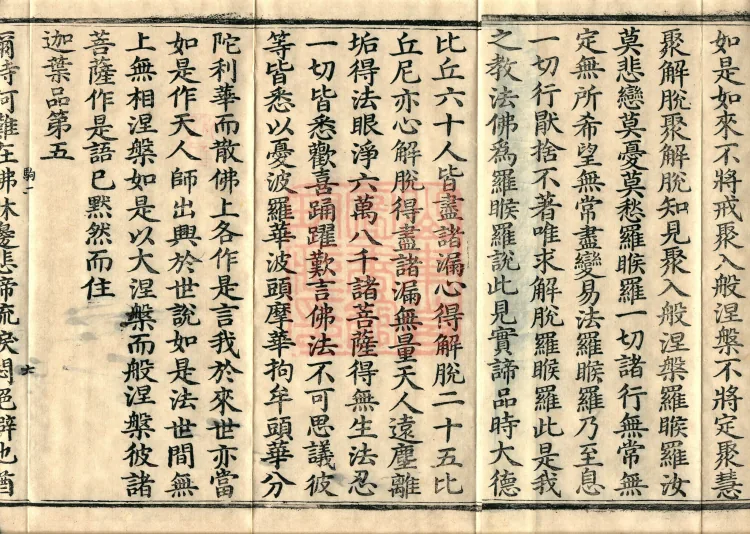 如是如來不將戒聚入般涅槃不將定聚慧
聚解脫聚解脫知見聚入般涅槃羅睺羅汝
莫悲戀莫憂莫愁羅睺羅一切諸行無常無
定無所希望無常盡變易法羅睺羅乃至息
一切行猒捨不著唯求解脫羅睺羅此是我
之教法佛爲羅睺羅說此見實諦品時大德
比丘六十人皆盡諸漏心得解脫二十五比
丘尼亦心解脫得盡諸漏無量天人遠塵離
垢得法眼淨六萬八千諸菩薩得無生法忍
一切皆悉歡喜踊躍歎言佛法不可思議彼
等皆悉以憂波羅華波頭摩華拘牟頭華分
陀利華而散佛上各作是言我於來世亦當
如是作天人師出興於世說如是法世間無
上無相涅槃如是以大涅槃而般涅槃彼諸
菩薩作是語已默然而住
迦葉品第五
爾時阿難在佛牀邊悲啼流淚悶絕躃地酋